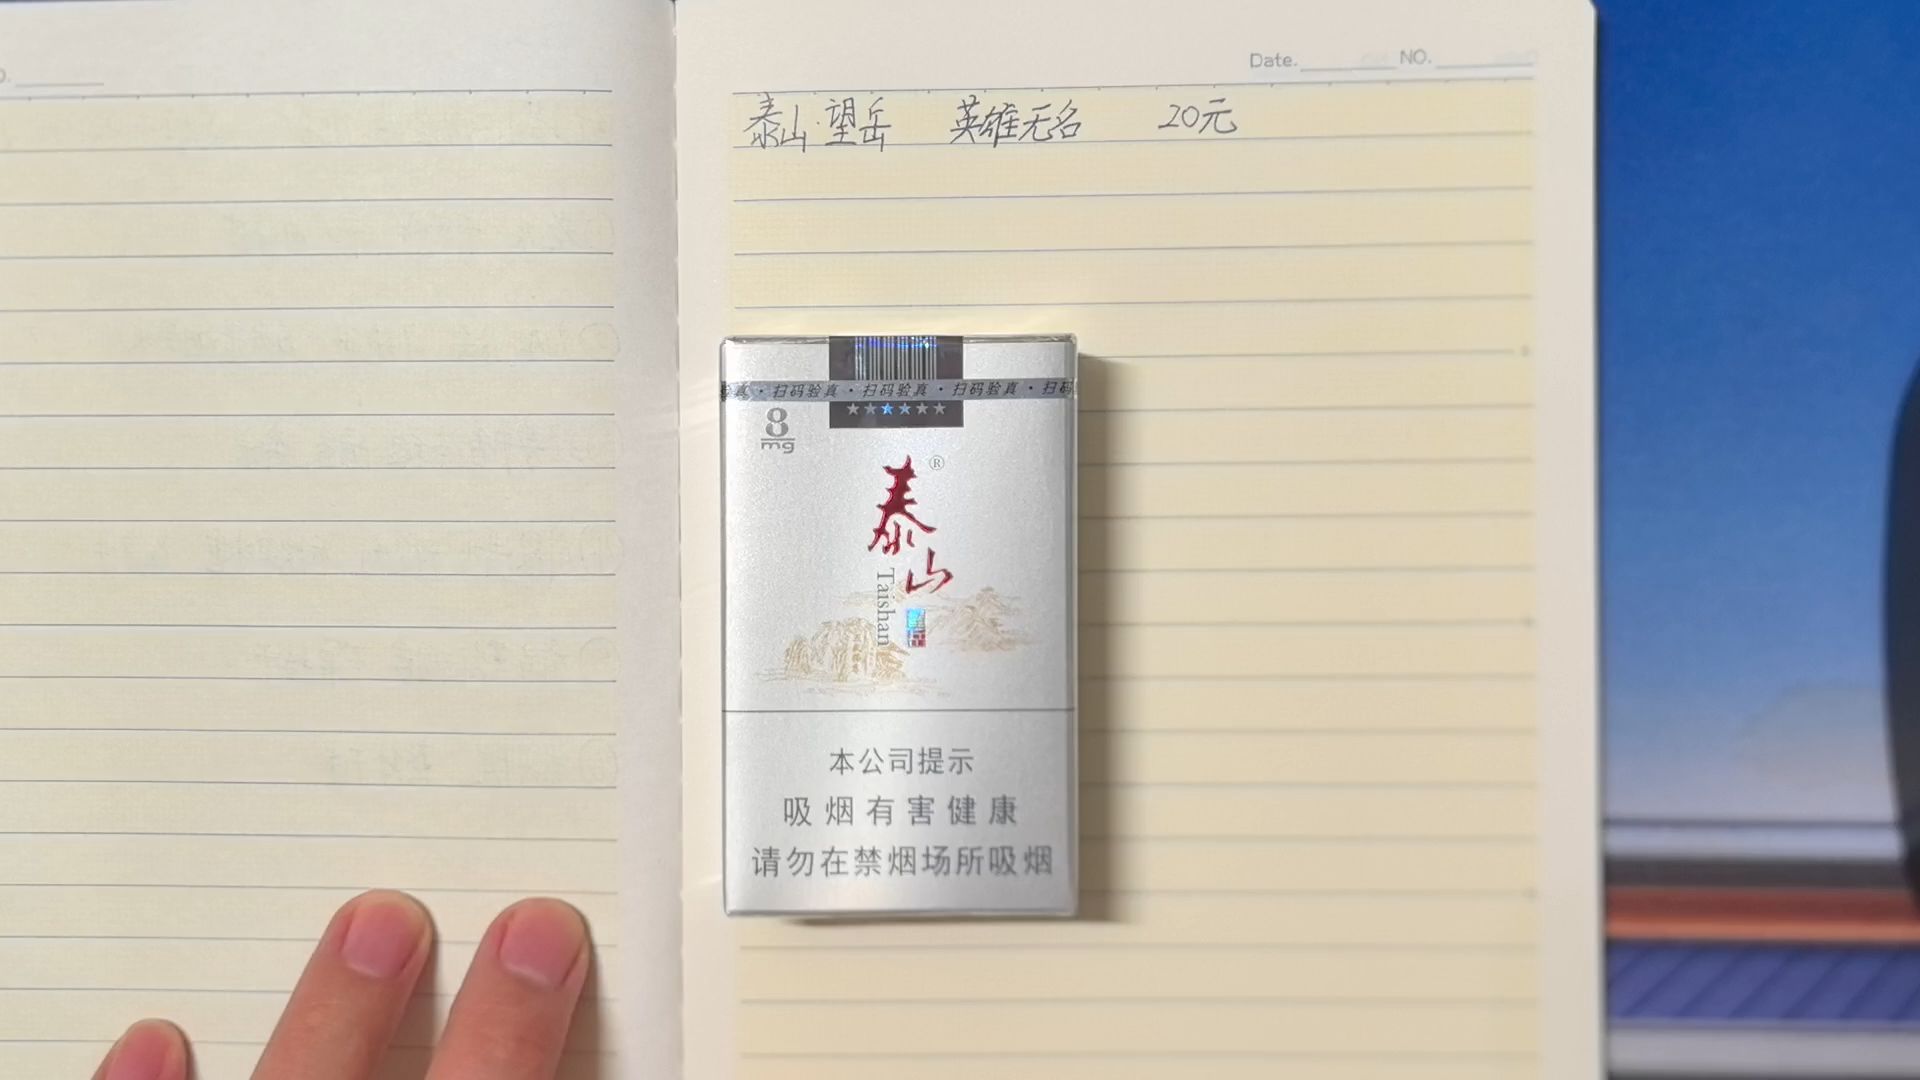 Date. NO.
泰山·望岳 英雄无名 20元
验真·扫码验真·扫码验真·扫码验真·扫码
★★★★★★
8
mg
泰山®
Taishan
望岳
本公司提示
吸烟有害健康
请勿在禁烟场所吸烟